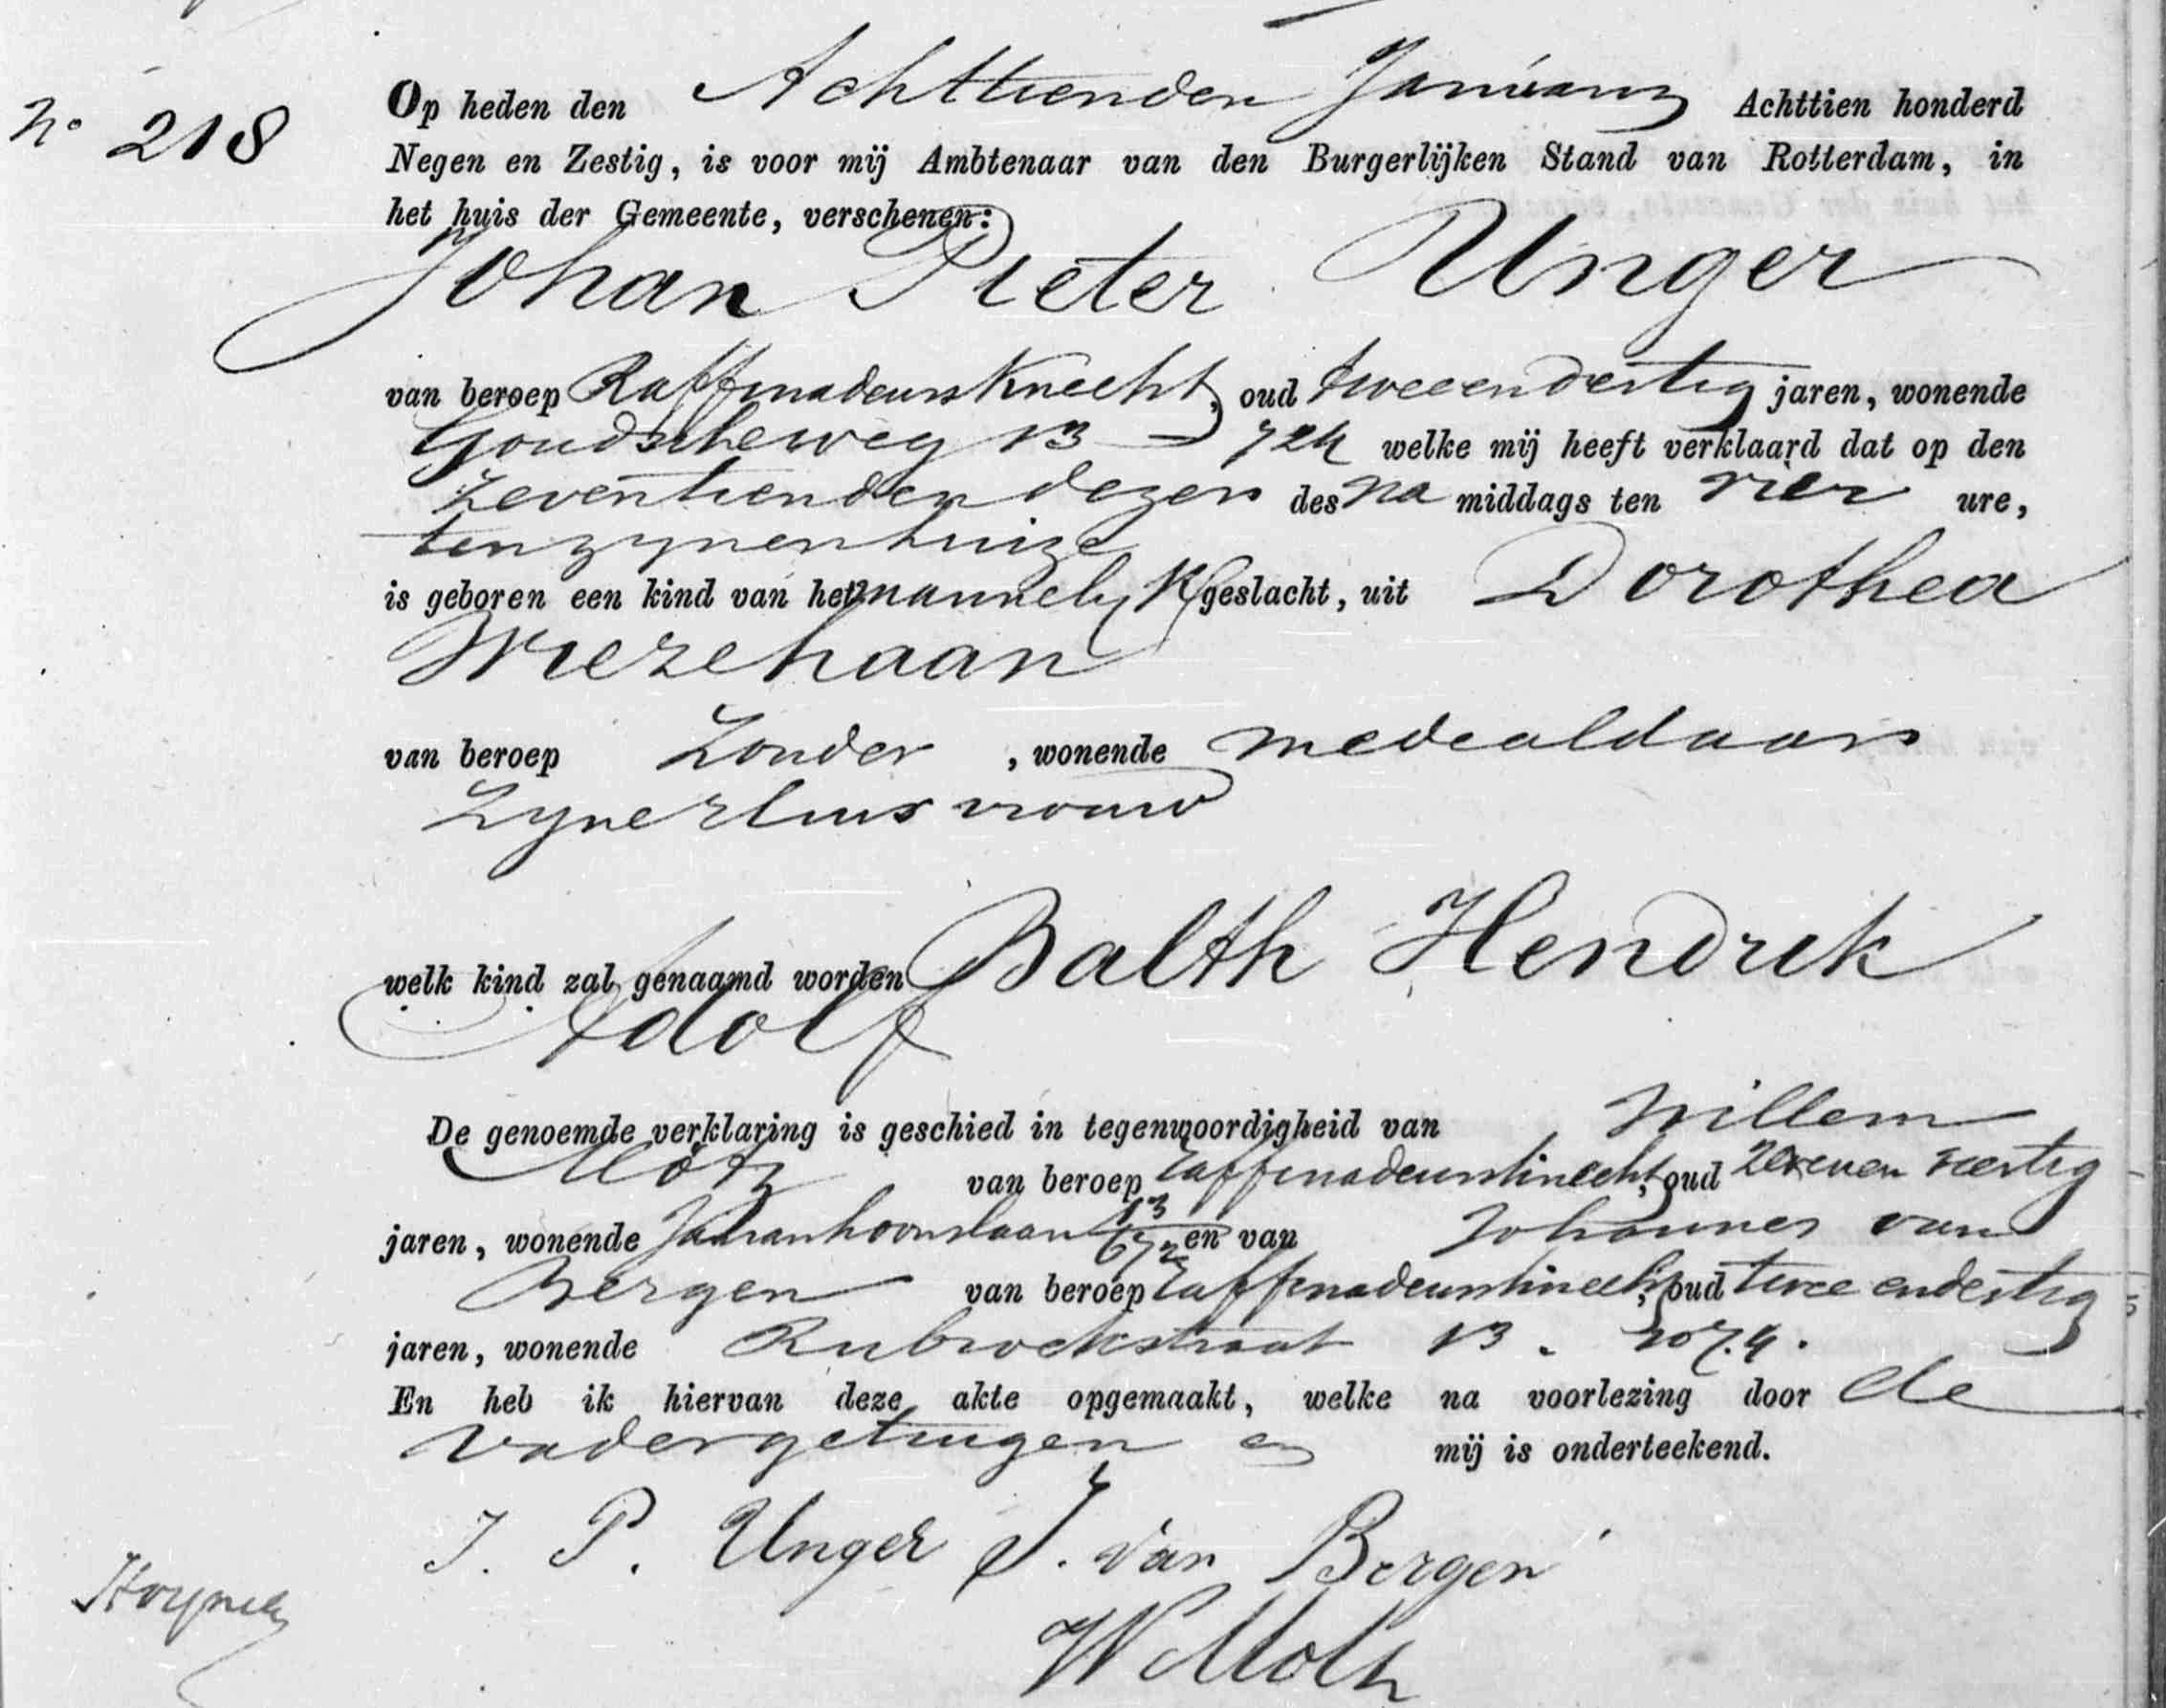 No 218
Op heden den Achttienden Januarij Achttien honderd
Negen en Zestig, is voor mij Ambtenaar van den Burgerlijken Stand van Rotterdam, in
het huis der Gemeente, verschenen:
Johan Pieter Unger
van beroep Raffinadeursknecht, oud tweeendertig jaren, wonende
Goudscheweg 13 - welke mij heeft verklaard dat op den
zeventienden dezer des na middags ten vier ure,
ten zynen huize
is geboren een kind van het mannelyk geslacht, uit Dorothea
Wiezehaan
van beroep Zonder, wonende mede aldaar
Zyne Huisvrouw
welk kind zal genaamd worden Balth Hendrik
Adolf
De genoemde verklaring is geschied in tegenwoordigheid van Willem
Motz van beroep raffinadeursknecht, oud zevenenveertig
jaren, wonende 13 672 en van Johannes van
Bergen van beroep raffinadeursknecht, oud twee endertig
jaren, wonende Rubroekstraat 13.
En heb ik hiervan deze akte opgemaakt, welke na voorlezing door de
vader getuigen en mij is onderteekend.
J. P. Unger J. van Bergen
W Motz